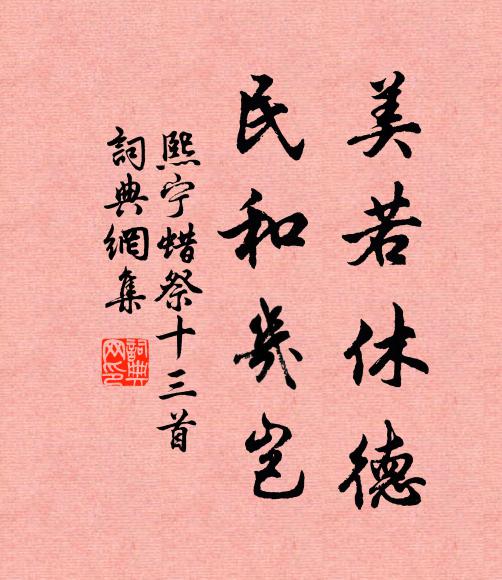 美若休德
民和歲豈
熙宁蜡祭十三首
詞典網集
詞典網印